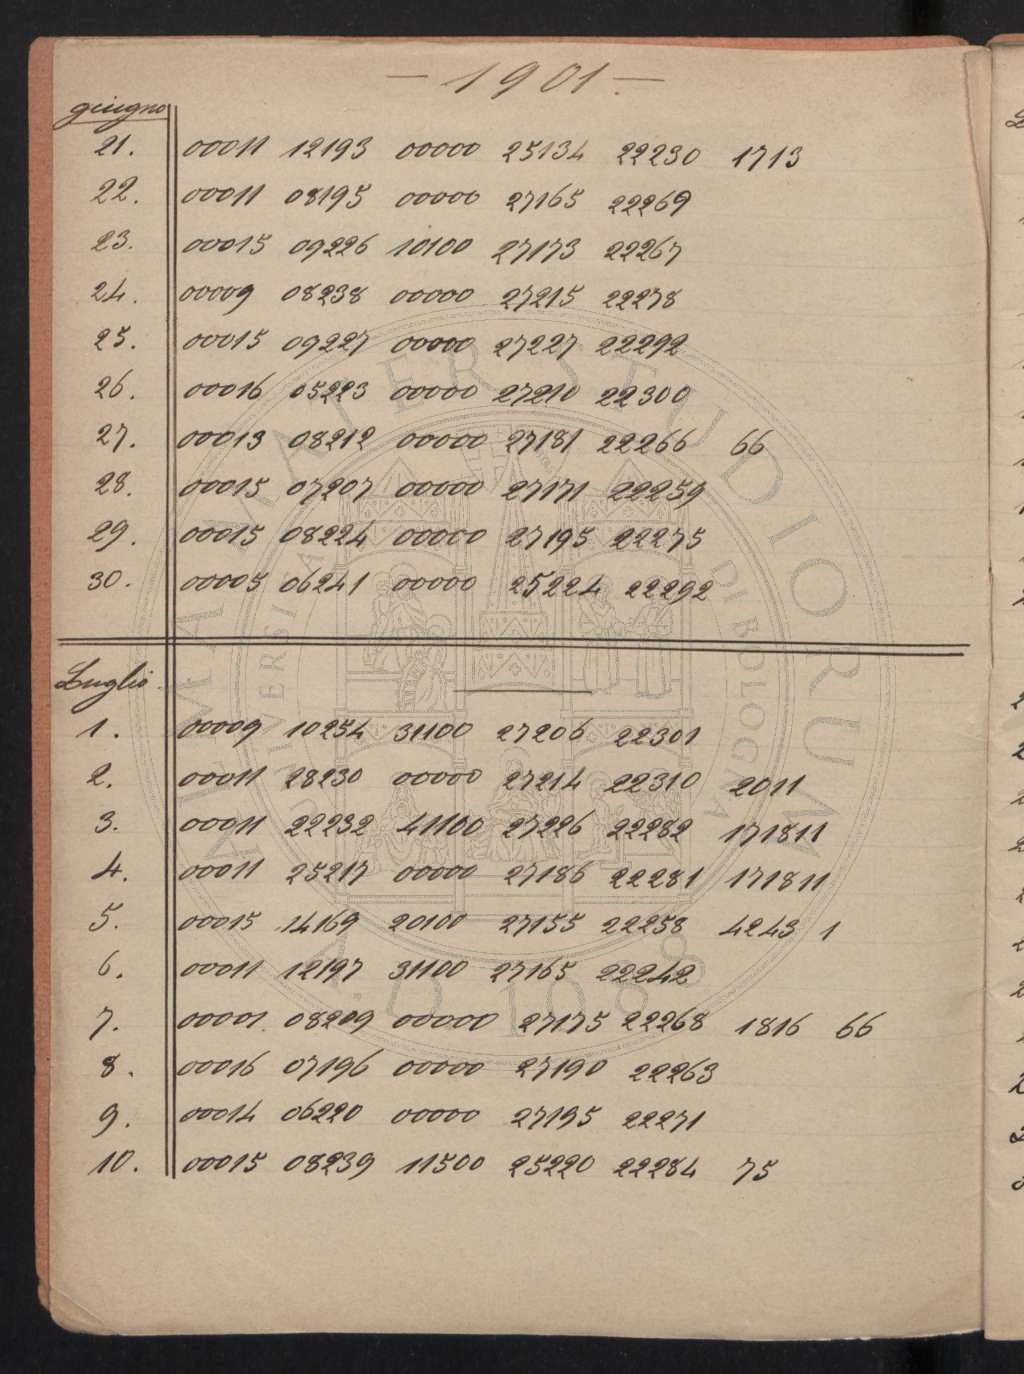 — 1901. —
giugno
21. 00011 12193 00000 25134 22230 1713
22. 00011 08195 00000 27165 22269
23. 00015 09226 10100 27173 22267
24. 00009 08238 00000 27215 22278
25. 00015 09227 00000 27227 22292
26. 00016 05223 00000 27210 22300
27. 00013 08212 00000 27181 22266 66
28. 00015 07207 00000 27171 22259
29. 00015 08224 00000 27195 22275
30. 00005 06241 00000 25224 22292
Luglio
1. 00009 10254 31100 27206 22301
2. 00011 28230 00000 27214 22310 2011
3. 00011 22232 41100 27226 22282 171811
4. 00011 25217 00000 27186 22281 171811
5. 00015 14169 20100 27155 22258 4243 1
6. 00011 12197 31100 27165 22242
7. 00001 08209 00000 27175 22268 1816 66
8. 00016 07196 00000 27190 22263
9. 00014 06220 00000 27195 22271
10. 00015 08239 11500 25220 22284 75